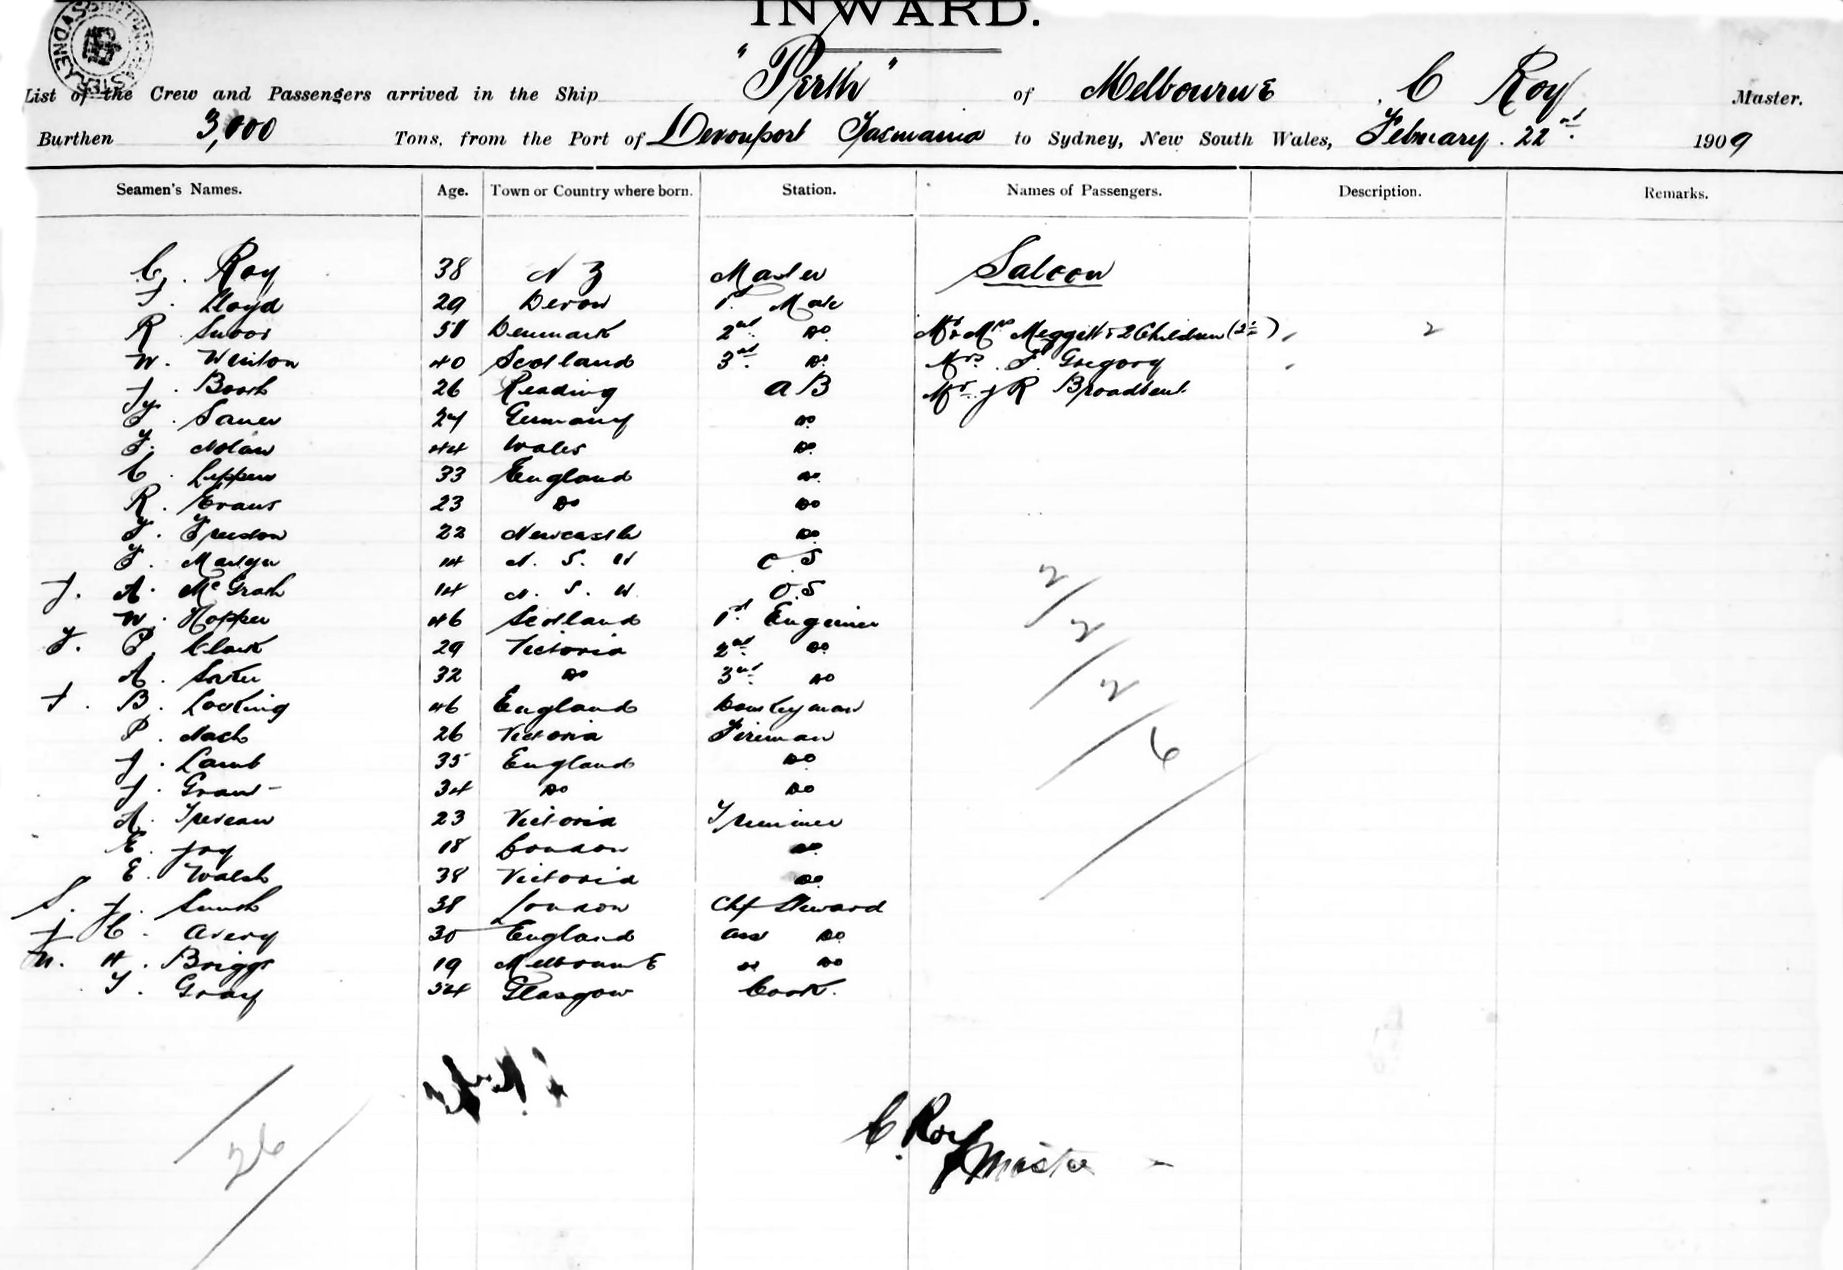 INWARD.
List of the Crew and Passengers arrived in the Ship "Perth" of Melbourne C Roy Master.
Burthen 3,000 Tons, from the Port of Devonport Tasmania to Sydney, New South Wales, February 22nd 1909
Seamen's Names. Age. Town or Country where born. Station. Names of Passengers. Description. Remarks.
C. Roy 38 N Z Master Saloon
Lloyd 29 Devon 1st Mate
R 58 Denmark 2nd Do Mr & Mrs Meggitt & 2 Children 2
W. Weston 40 Scotland 3rd Do Mrs Gregory
Booth 26 Reading A B Mr J R Broadbent
Sauer 24 Germany Do
Nolan 44 Wales Do
C. 33 England Do
R. Evans 23 Do Do
22 Newcastle Do
14 N. S. W O S
J. A. McGrath 14 N. S. W. O.S
W. Hopper 46 Scotland 1st Engineer
Clark 29 Victoria 2nd Do
A. 32 Do 3rd Do
J. B. 46 England Donkeyman
P. Nash 26 Victoria Fireman
J. Lamb 35 England Do
J. Grant 34 Do Do
A. 23 Victoria Trimmer
E. Joy 18 London Do
E. Walsh 38 Victoria Do
S. J. 38 London Chf Steward
J C. Avery 30 England Ass Do
H. Briggs 19 Melbourne Do
T. Gray 54 Glasgow Cook.
2
2
2
6
26
C. Roy
Master